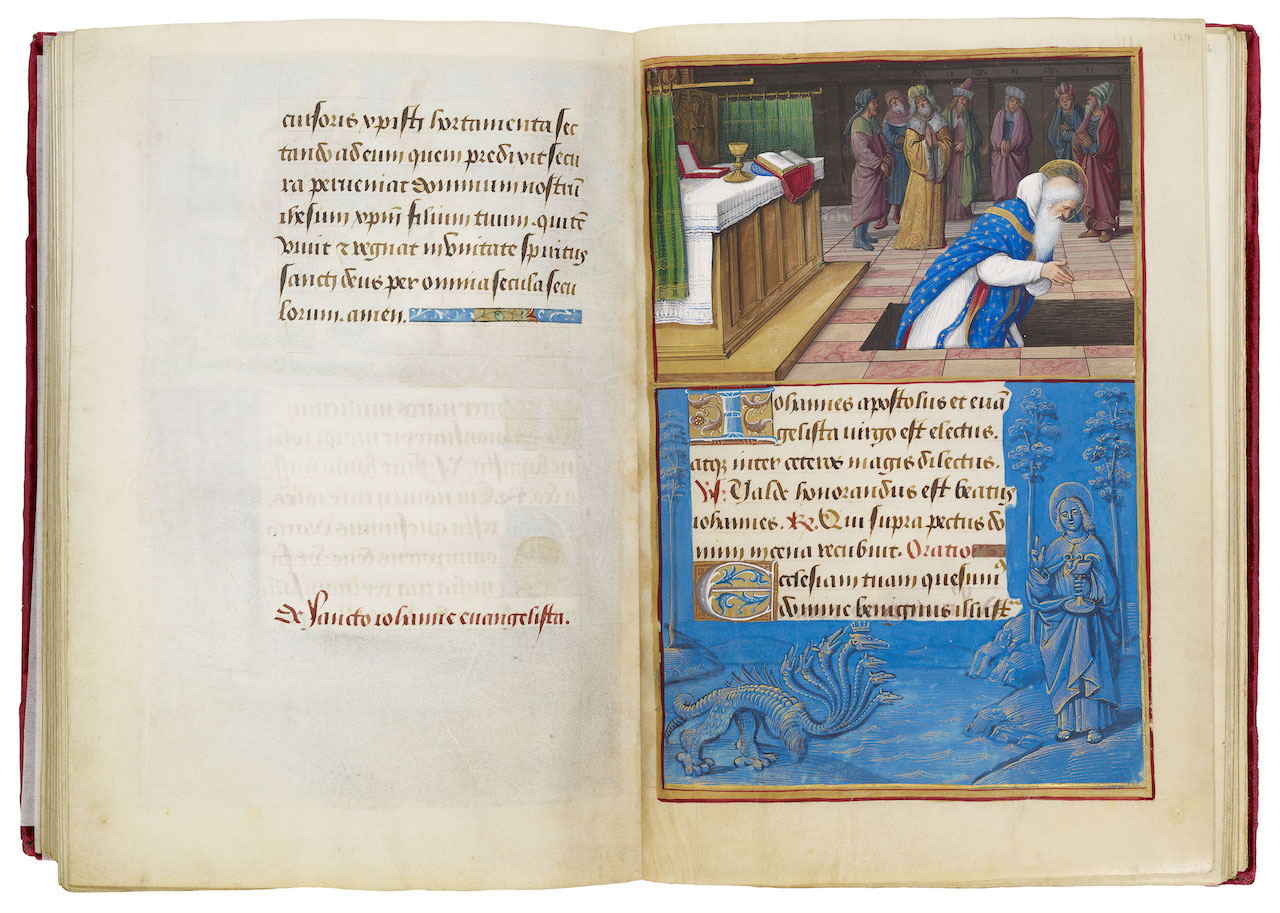 cursoris xpisti hortamenta sec
tando ad eum quem predixit secu
ra perveniat dominum nostrum
ihesum xpm filium tuum. qui te
vivit et regnat in unitate spiritus
sancti deus per omnia secula secu
lorum. amen.
De sancto iohanne euangelista.
124
Iohannes apostolus et euā
gelista virgo est electus.
atqz inter ceteros magis dilectus.
V̄. Valde honorandus est beatus
iohannes. R̄. Qui supra pectus do
mini in cena recubuit. Oratio
Ecclesiam tuam quesum̄
domine benignus illust̄